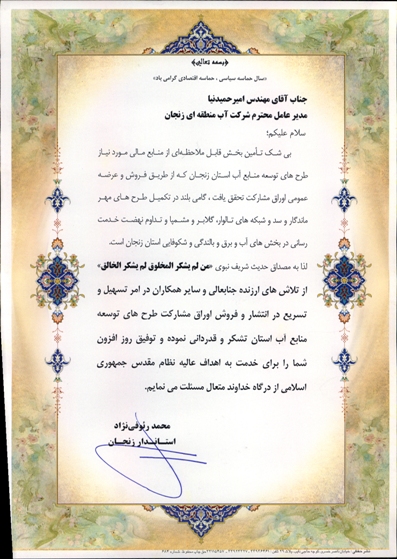 ﴿بسمه تعالی﴾
«سال حماسه سیاسی ، حماسه اقتصادی گرامی باد»
جناب آقای مهندس امیرحمیدنیا
مدیر عامل محترم شرکت آب منطقه ای زنجان
سلام علیکم؛
بی شک تأمین بخش قابل ملاحظه‌ای از منابع مالی مورد نیاز
طرح های توسعه منابع آب استان زنجان که از طریق فروش و عرضه
عمومی اوراق مشارکت تحقق یافت ، گامی بلند در تکمیل طرح های مهر
ماندگار و سد و شبکه های تالوار، گلابر و مشمپا و تداوم نهضت خدمت
رسانی در بخش های آب و برق و بالندگی و شکوفایی استان زنجان است.
لذا به مصداق حدیث شریف نبوی «من لم یشکر المخلوق لم یشکر الخالق»
از تلاش های ارزنده جنابعالی و سایر همکاران در امر تسهیل و
تسریع در انتشار و فروش اوراق مشارکت طرح های توسعه
منابع آب استان تشکر و قدردانی نموده و توفیق روز افزون
شما را برای خدمت به اهداف عالیه نظام مقدس جمهوری
اسلامی از درگاه خداوند متعال مسئلت می نمایم.
محمد رئوفی‌نژاد
استاندار زنجان